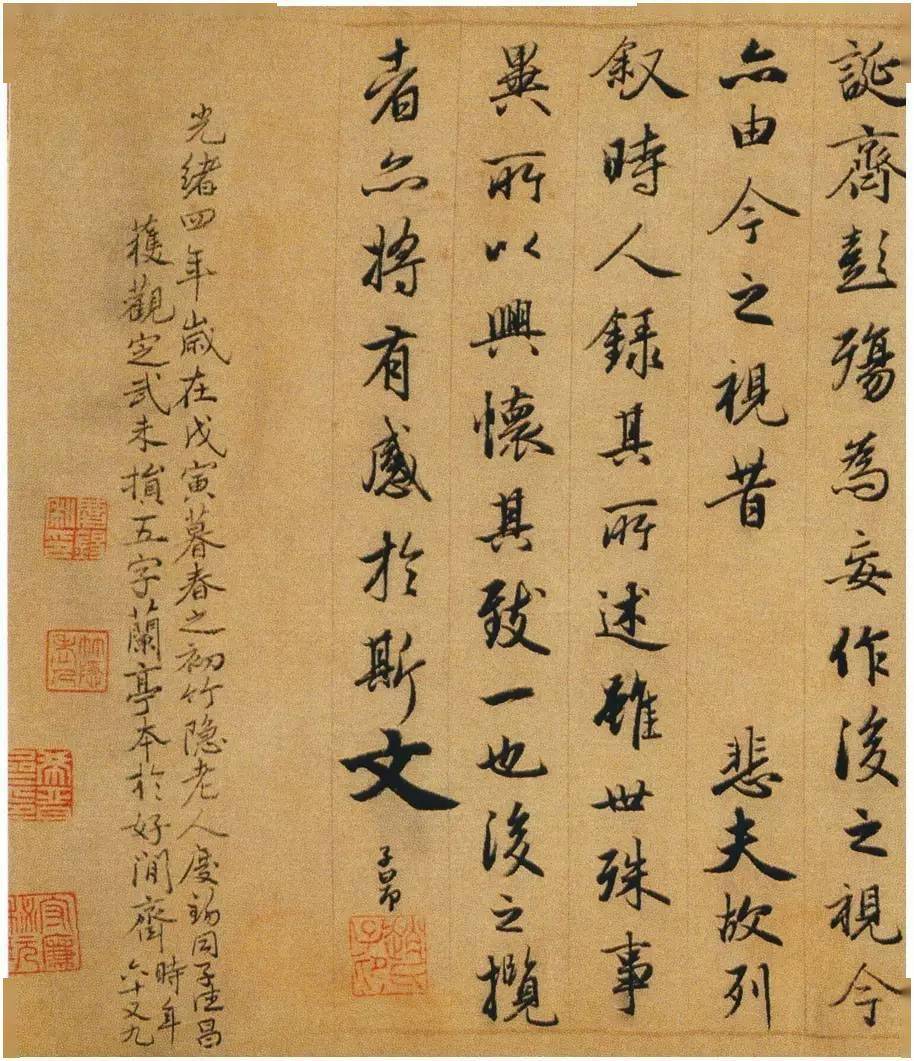 誕齊彭殤為妄作後之視今
亦由今之視昔 悲夫故列
叙時人錄其所述雖世殊事
異所以興懷其致一也後之攬
者亦將有感於斯文
子昂
趙氏子昂
光緒四年歲在戊寅暮春之初竹隱老人慶錫同子德昌
獲觀定武未損五字蘭亭本於好閒齋時年
六十又九